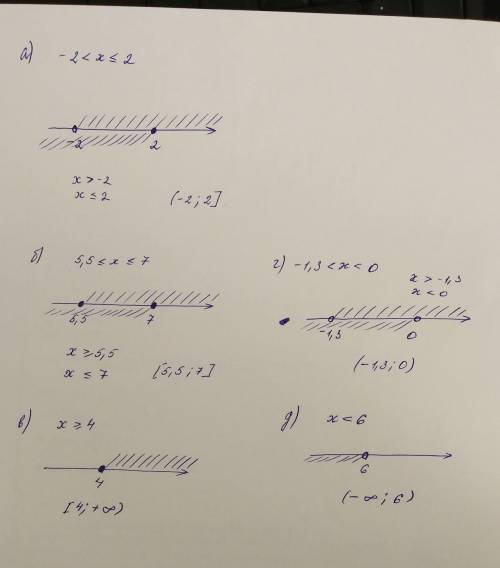 а) -2 < x ≤ 2
-2 2
x > -2
x ≤ 2 (-2; 2]
б) 5,5 ≤ x ≤ 7
5,5 7
x ≥ 5,5
x ≤ 7 [5,5; 7]
г) -1,3 < x < 0
x > -1,3
x < 0
-1,3 0
(-1,3; 0)
в) x ≥ 4
4
[4; +∞)
д) x < 6
6
(-∞; 6)